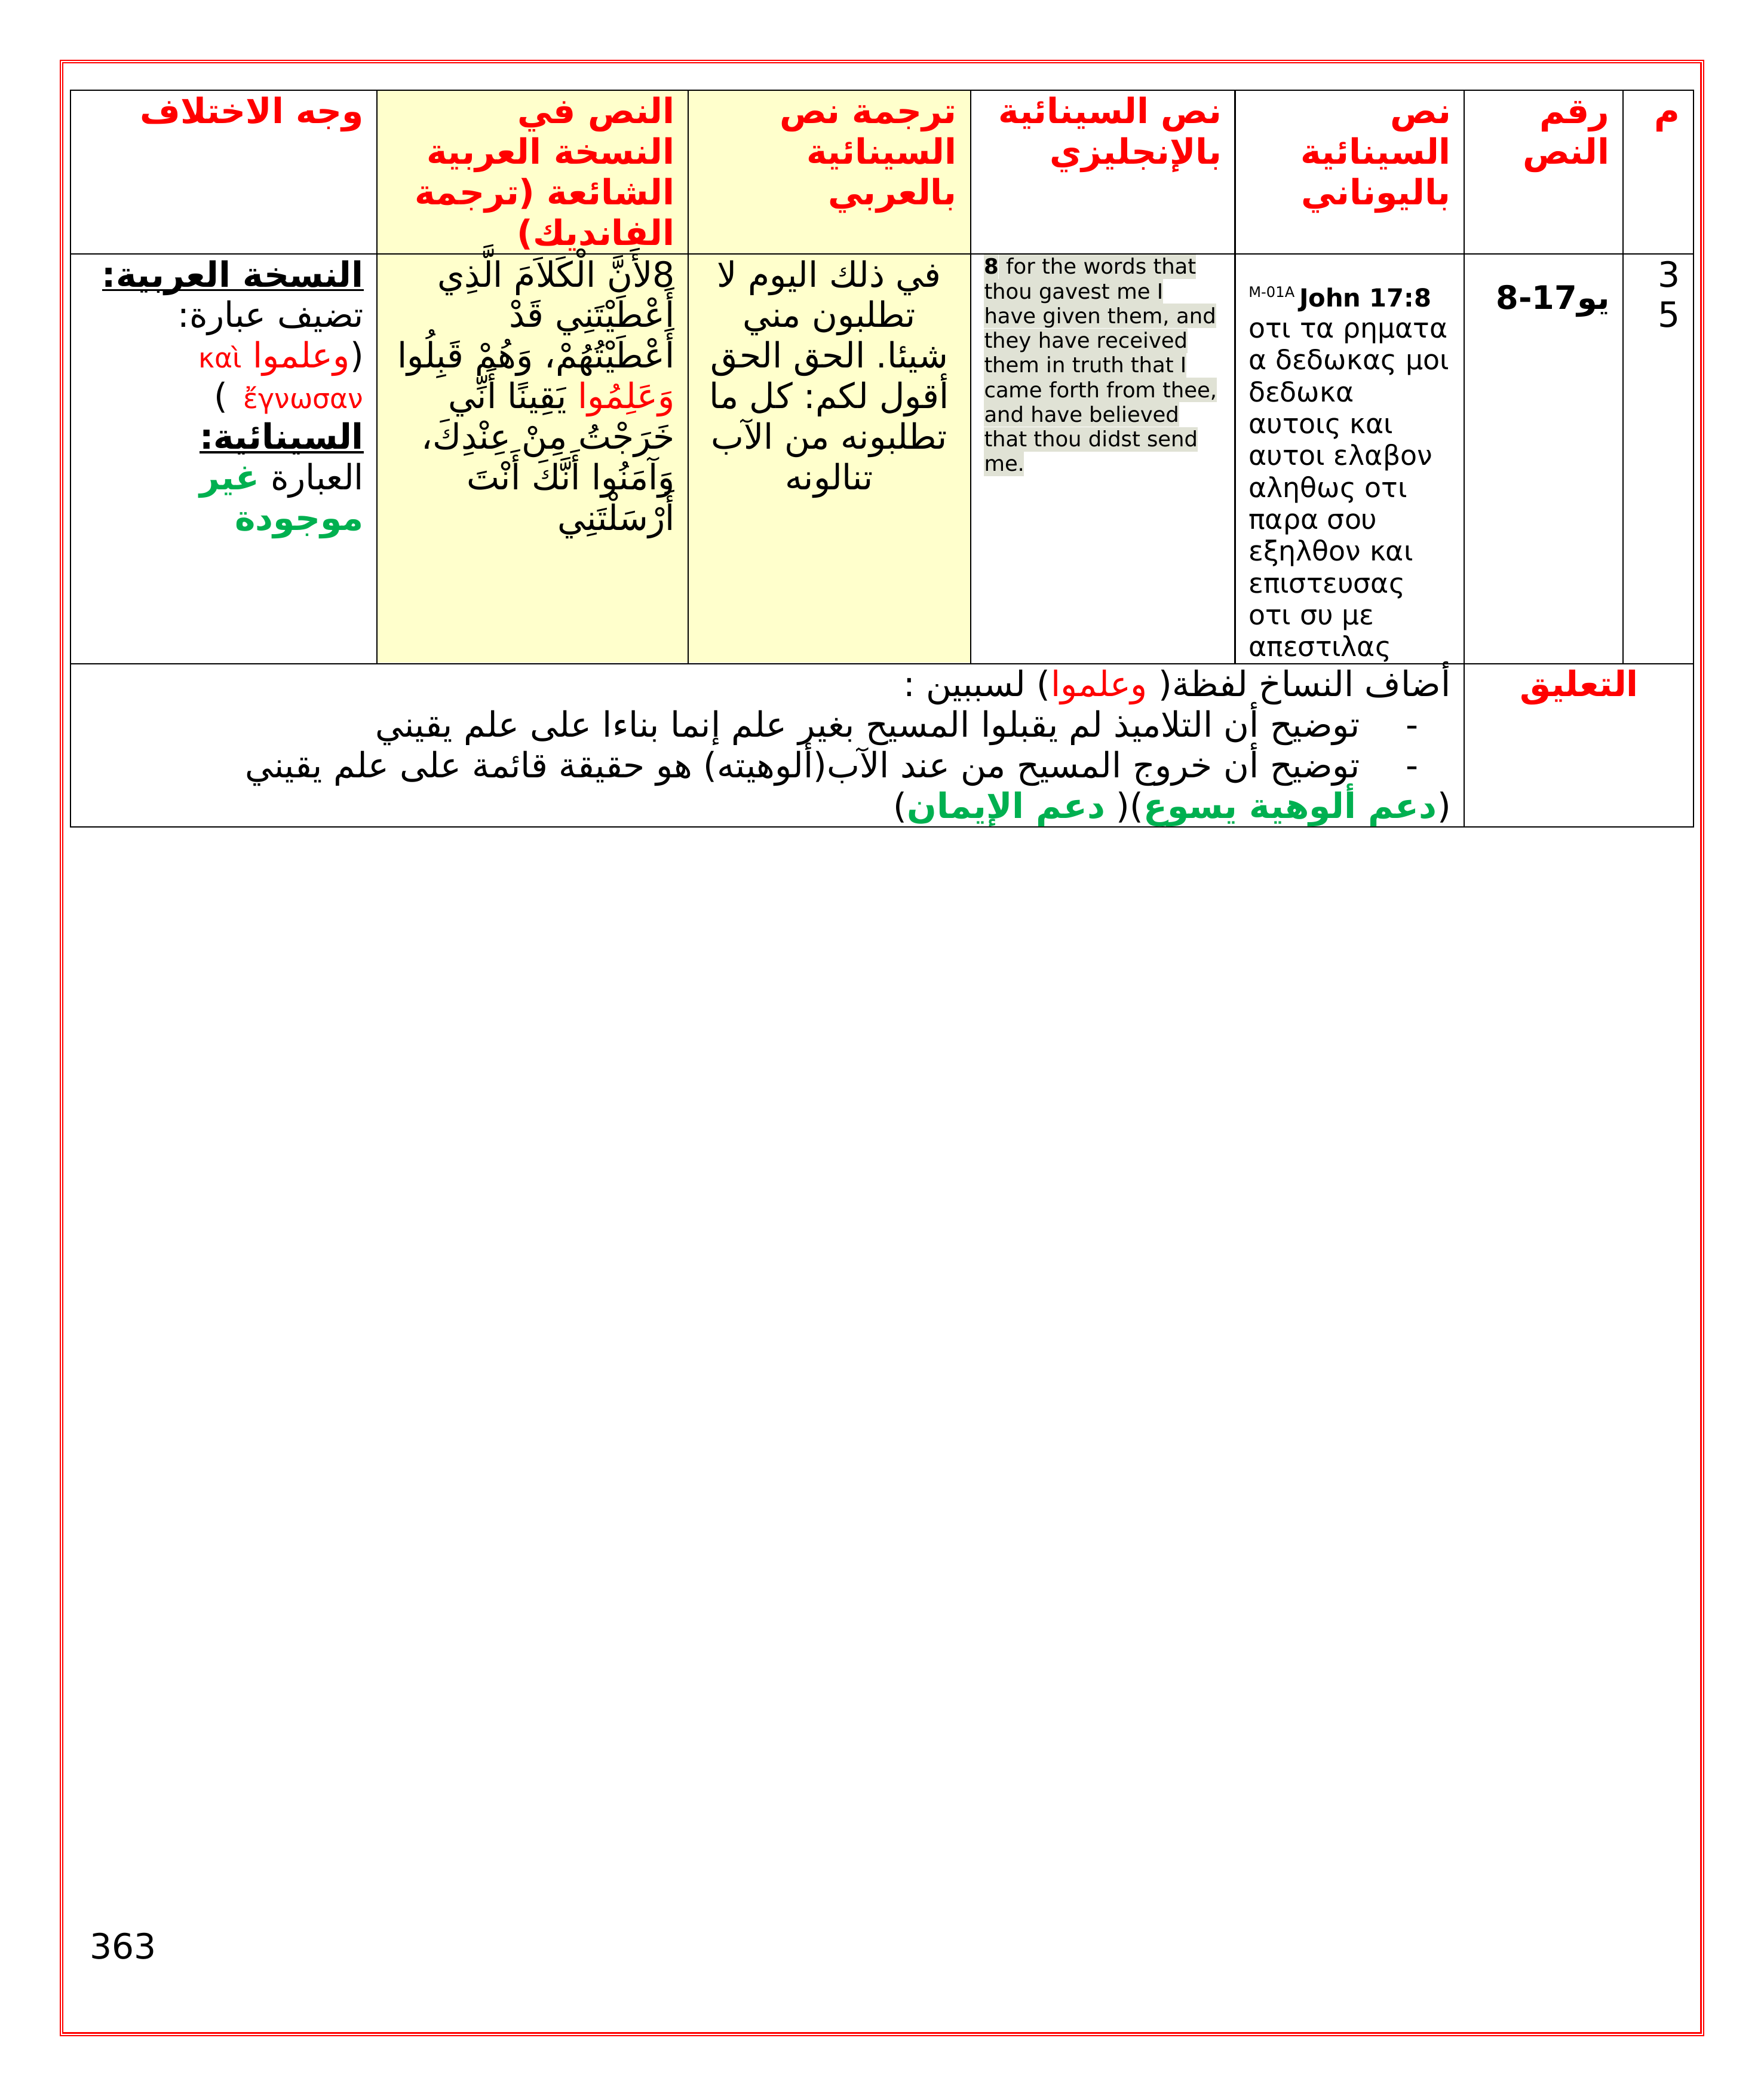 م
رقم
النص
نص
السينائية
باليوناني
نص السينائية
بالإنجليزي
ترجمة نص
السينائية
بالعربي
النص في
النسخة العربية
الشائعة (ترجمة
الفانديك)
وجه الاختلاف
3
5
يو17-8
M-01A John 17:8
οτι τα ρηματα
α δεδωκας μοι
δεδωκα
αυτοις και
αυτοι ελαβον
αληθως οτι
παρα σου
εξηλθον και
επιστευσας
οτι συ με
απεστιλας
8 for the words that
thou gavest me I
have given them, and
they have received
them in truth that I
came forth from thee,
and have believed
that thou didst send
me.
في ذلك اليوم لا
تطلبون مني
شيئا. الحق الحق
أقول لكم: كل ما
تطلبونه من الآب
تنالونه
8لأَنَّ الْكَلاَمَ الَّذِي
أَعْطَيْتَنِي قَدْ
أَعْطَيْتُهُمْ، وَهُمْ قَبِلُوا
وَعَلِمُوا يَقِينًا أَنِّي
خَرَجْتُ مِنْ عِنْدِكَ،
وَآمَنُوا أَنَّكَ أَنْتَ
أَرْسَلْتَنِي
النسخة العربية:
تضيف عبارة:
(وعلموا καὶ
ἔγνωσαν )
السينائية:
العبارة غير
موجودة
التعليق
أضاف النساخ لفظة( وعلموا) لسببين :
- توضيح أن التلاميذ لم يقبلوا المسيح بغير علم إنما بناءا على علم يقيني
- توضيح أن خروج المسيح من عند الآب(ألوهيته) هو حقيقة قائمة على علم يقيني
(دعم ألوهية يسوع)( دعم الإيمان)
363